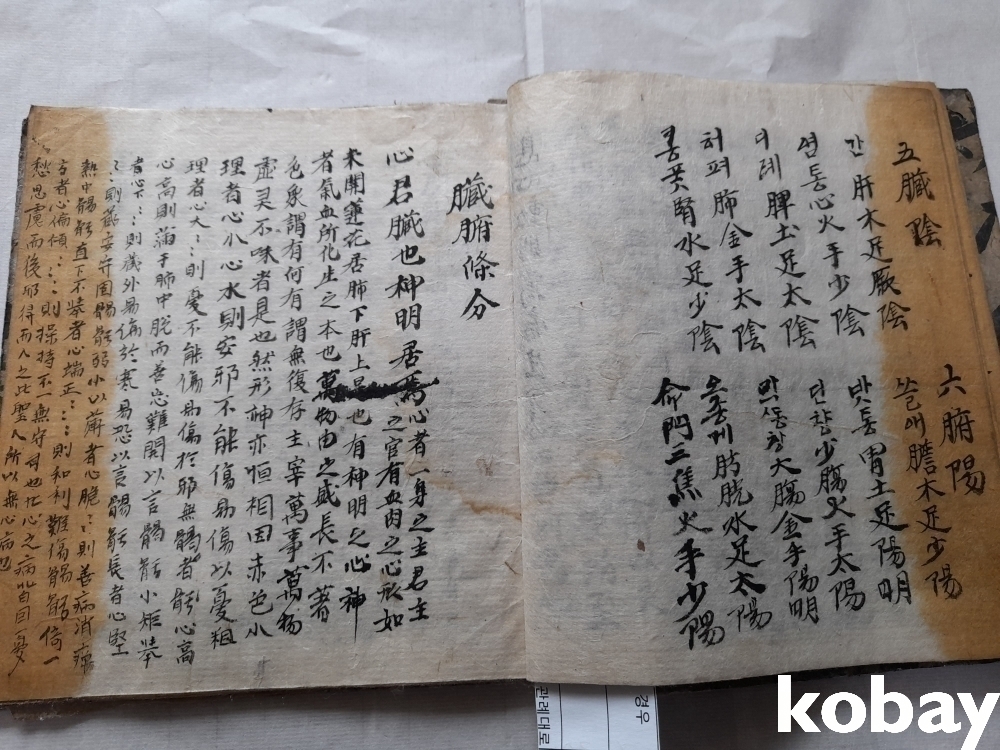 五臟陰
간 肝木足厥陰
염통心火手少陰
이레脾土足太陰
허펴肺金手太陰
콩풋腎水足少陰
六腑陽
쓸애膽木足少陽
밧통胃土足陽明
단창少膓火手太陽
막창大膓金手陽明
오좀께肪胱水足太陽
命門三焦火手少陽
臟腑條分
心君臟也神明居焉心者一身之主君主
之官有血肉之心形如
未開蓮花居肺下肝上是也有神明之心神
者氣血所化生之本也萬物由之盛長不著
色象謂有何有謂無復存主宰萬事萬物
虛灵不昧者是也然形神亦恒相因赤色小
理者心小心小則安邪不能傷易傷以憂粗
理者心大〻則憂不能傷易傷於邪無䯏者心高
心高則滿于肺中悗而善忘難開以言䯏小短擧
者心下〻則藏外易傷於寒易恐以言䯏長者心堅
〻則藏安守固䯏弱小以薄者心脆〻則善病消癉
熱中䯏直下不擧者心端正〻則和利難傷䯏倚一
方者心偏傾〻則操持不一無守司也忙心之病皆因憂
愁思慮而後邪得而入之此聖人所以無心病也
kobay
경우
관례대로